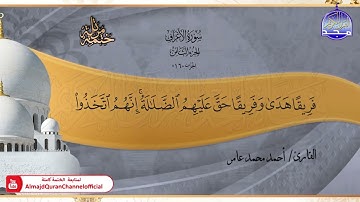 سورة الأعراف
الجزء الثامن
الحزب «١٦»
فَرِيقًا هَدَىٰ وَفَرِيقًا حَقَّ عَلَيْهِمُ ٱلضَّلَٰلَةُ ۗ إِنَّهُمُ ٱتَّخَذُوا۟
القارئ / أحمد محمد عامر
لمتابعة الختمة كاملة
AlmajdQuranChannelofficial